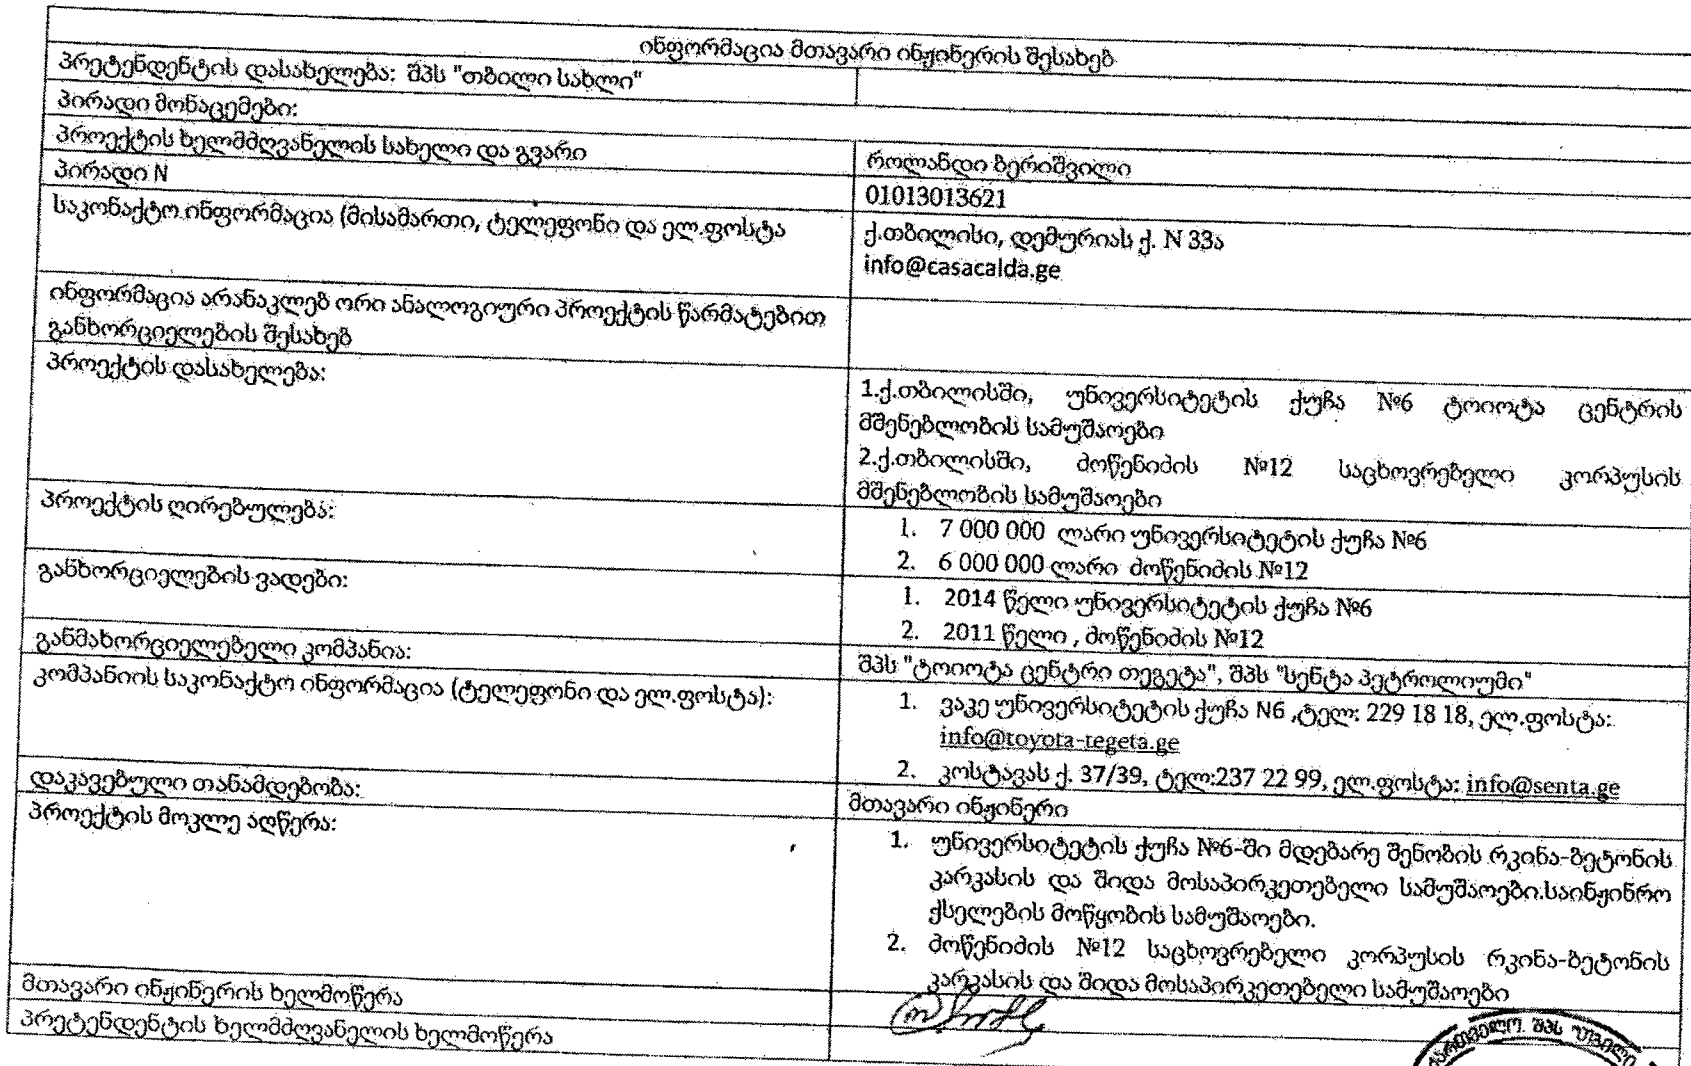 ინფორმაცია მთავარი ინჟინერის შესახებ
პრეტენდენტის დასახელება: შპს "თბილი სახლი"
პირადი მონაცემები:
პროექტის ხელმმღვანელის სახელი და გვარი
როლანდი ბერიშვილი
პირადი N
01013013621
საკონაქტო ინფორმაცია (მისამართი, ტელეფონი და ელ.ფოსტა
ქ.თბილისი, დემურიას ქ. N 33ა
info@casacalda.ge
ინფორმაცია არანაკლებ ორი ანალოგიური პროექტის წარმატებით
განხორციელების შესახებ
პროექტის დასახელება:
1.ქ.თბილისში, უნივერსიტეტის ქუჩა №6 ტოიოტა ცენტრის
მშენებლობის სამუშაოები
2.ქ.თბილისში, მოწენიძის №12 საცხოვრებელი კორპუსის
მშენებლობის სამუშაოები
პროექტის ღირებულება:
1. 7 000 000 ლარი უნივერსიტეტის ქუჩა №6
2. 6 000 000 ლარი მოწენიძის №12
განხორციელების ვადები:
1. 2014 წელი უნივერსიტეტის ქუჩა №6
2. 2011 წელი , მოწენიძის №12
განმახორციელებელი კომპანია:
შპს "ტოიოტა ცენტრი თეგეტა", შპს "სენტა პეტროლიუმი"
კომპანიის საკონაქტო ინფორმაცია (ტელეფონი და ელ.ფოსტა):
1. ვაკე უნივერსიტეტის ქუჩა N6 ,ტელ: 229 18 18, ელ.ფოსტა:
info@toyota-tegeta.ge
2. კოსტავას ქ. 37/39, ტელ:237 22 99, ელ.ფოსტა: info@senta.ge
დაკავებული თანამდებობა:
მთავარი ინჟინერი
პროექტის მოკლე აღწერა:
1. უნივერსიტეტის ქუჩა №6-ში მდებარე შენობის რკინა-ბეტონის
კარკასის და შიდა მოსაპირკეთებელი სამუშაოები.საინჟინრო
ქსელების მოწყობის სამუშაოები.
2. მოწენიძის №12 საცხოვრებელი კორპუსის რკინა-ბეტონის
კარკასის და შიდა მოსაპირკეთებელი სამუშაოები
მთავარი ინჟინერის ხელმოწერა
პრეტენდენტის ხელმძღვანელის ხელმოწერა